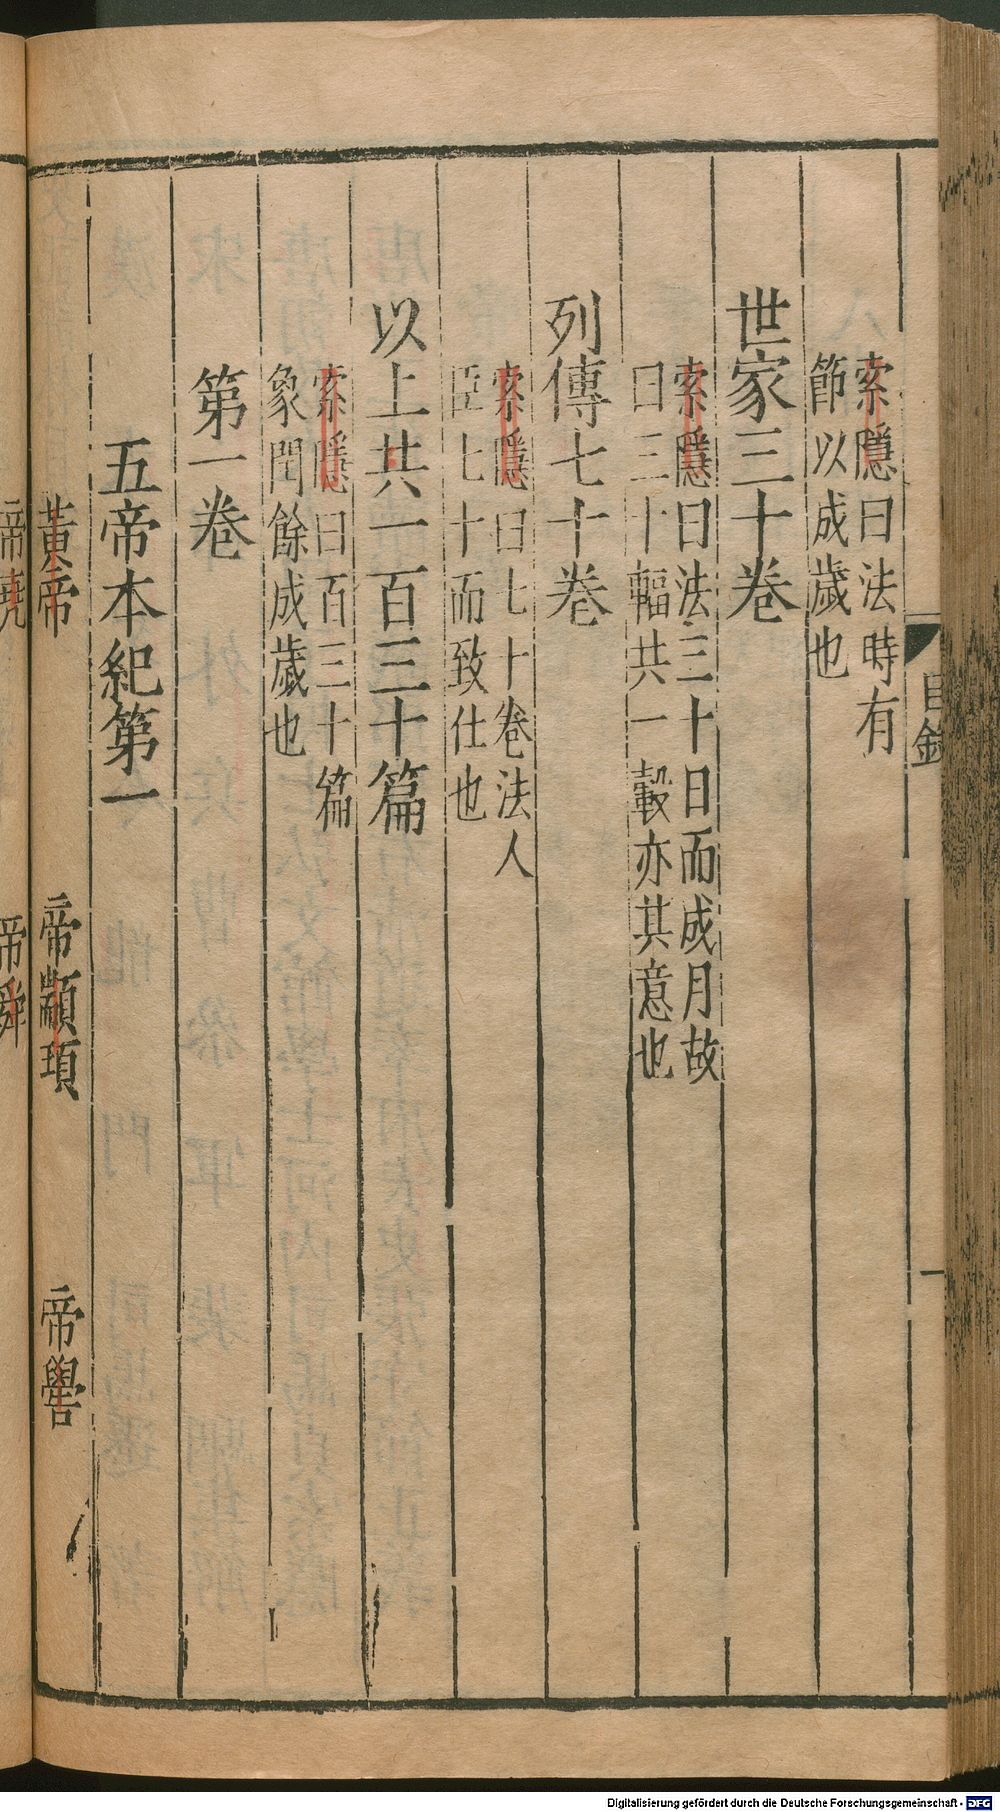 目錄
一
索隱曰法時有
節以成歲也
世家三十卷
索隱曰法三十日而成月故
曰三十輻共一轂亦其意也
列傳七十卷
索隱曰七十卷法人
臣七十而致仕也
以上共一百三十篇
索隱曰百三十篇
象閏餘成歲也
第一卷
五帝本紀第一
黃帝 帝顓頊 帝嚳
帝堯 帝舜
Digitalisierung gefördert durch die Deutsche Forschungsgemeinschaft - DFG